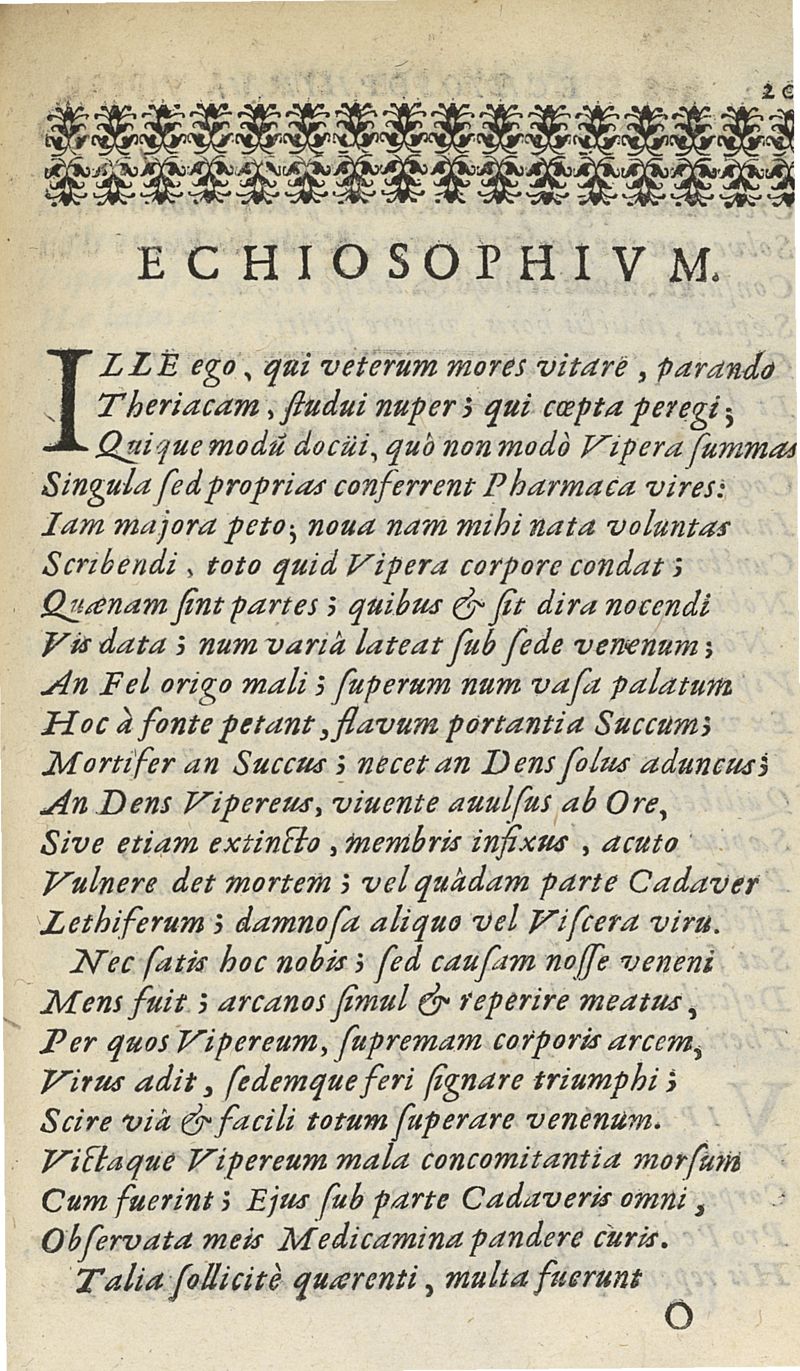 ECHIOSOPHIVM.
ILLE ego, qui veterum mores vitare, parando
Theriacam, ſtudui nuper; qui cœpta peregi;
Quique modū docüi, quò non modò Vipera ſummas
Singula ſed proprias conferrent Pharmaca vires:
Iam majora peto; noua nam mihi nata voluntas
Scribendi, toto quid Vipera corpore condat;
Quænam ſint partes; quibus & ſit dira nocendi
Vis data; num variâ lateat ſub ſede venenum;
An Fel origo mali; ſuperum num vaſa palatum
Hoc à fonte petant, flavum portantia Succum;
Mortifer an Succus; necet an Dens ſolus aduncus;
An Dens Vipereus, viuente auulſus ab Ore,
Sive etiam extincto, membris infixus, acuto
Vulnere det mortem; vel quâdam parte Cadaver
Lethiferum; damnoſa aliquo vel Viſcera viru.
Nec ſatis hoc nobis; ſed cauſam noſſe veneni
Mens fuit; arcanos ſimul & reperire meatus,
Per quos Vipereum, ſupremam corporis arcem,
Virus adit, ſedemque feri ſignare triumphi;
Scire viâ & facili totum ſuperare venenum.
Victaque Vipereum mala concomitantia morſum
Cum fuerint; Ejus ſub parte Cadaveris omni,
Obſervata meis Medicamina pandere curis.
Talia ſollicitè quærenti, multa fuerunt
O